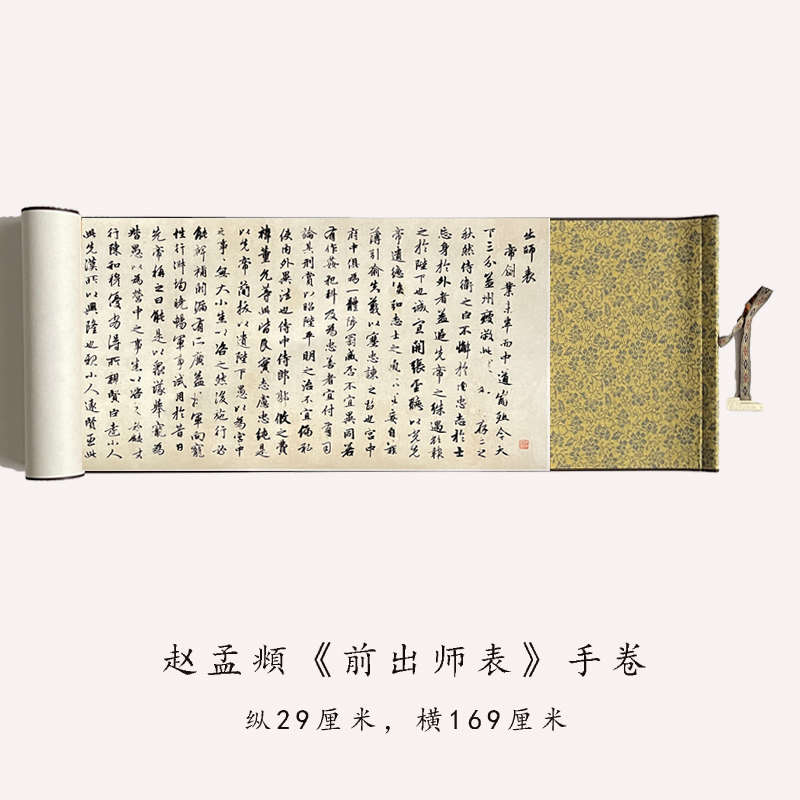 出師表
帝創業未半而中道崩殂今天
下三分益州疲敝此 存 之
秋然侍衛之臣不懈於內忠志於士
忘身於外者蓋追先帝之殊遇欲報
之於陛下也誠宜開張聖聽以光先
帝遺德恢弘志士之氣不宜妄自菲
薄引喻失義以塞忠諫之路也宮中
府中俱為一體陟罰臧否不宜異同若
有作姦犯科及為忠善者宜付有司
論其刑賞以昭陛平明之治不宜偏私
使內外異法也侍中侍郎 攸之費
禕董允等此皆良實志慮忠純是
以先帝簡拔以遺陛下愚以為宮中
之事無大小悉以咨之然後施行必
能裨補闕漏有所廣益將軍向寵
性行淑均曉暢軍事試用於昔日
先帝稱之曰能是以眾議舉寵為
督愚以為營中之事悉以咨之必能
行陳和穆優劣得所親賢臣遠小人
此先漢所以興隆也親小人遠賢臣此
赵孟頫《前出师表》手卷
纵29厘米，横169厘米